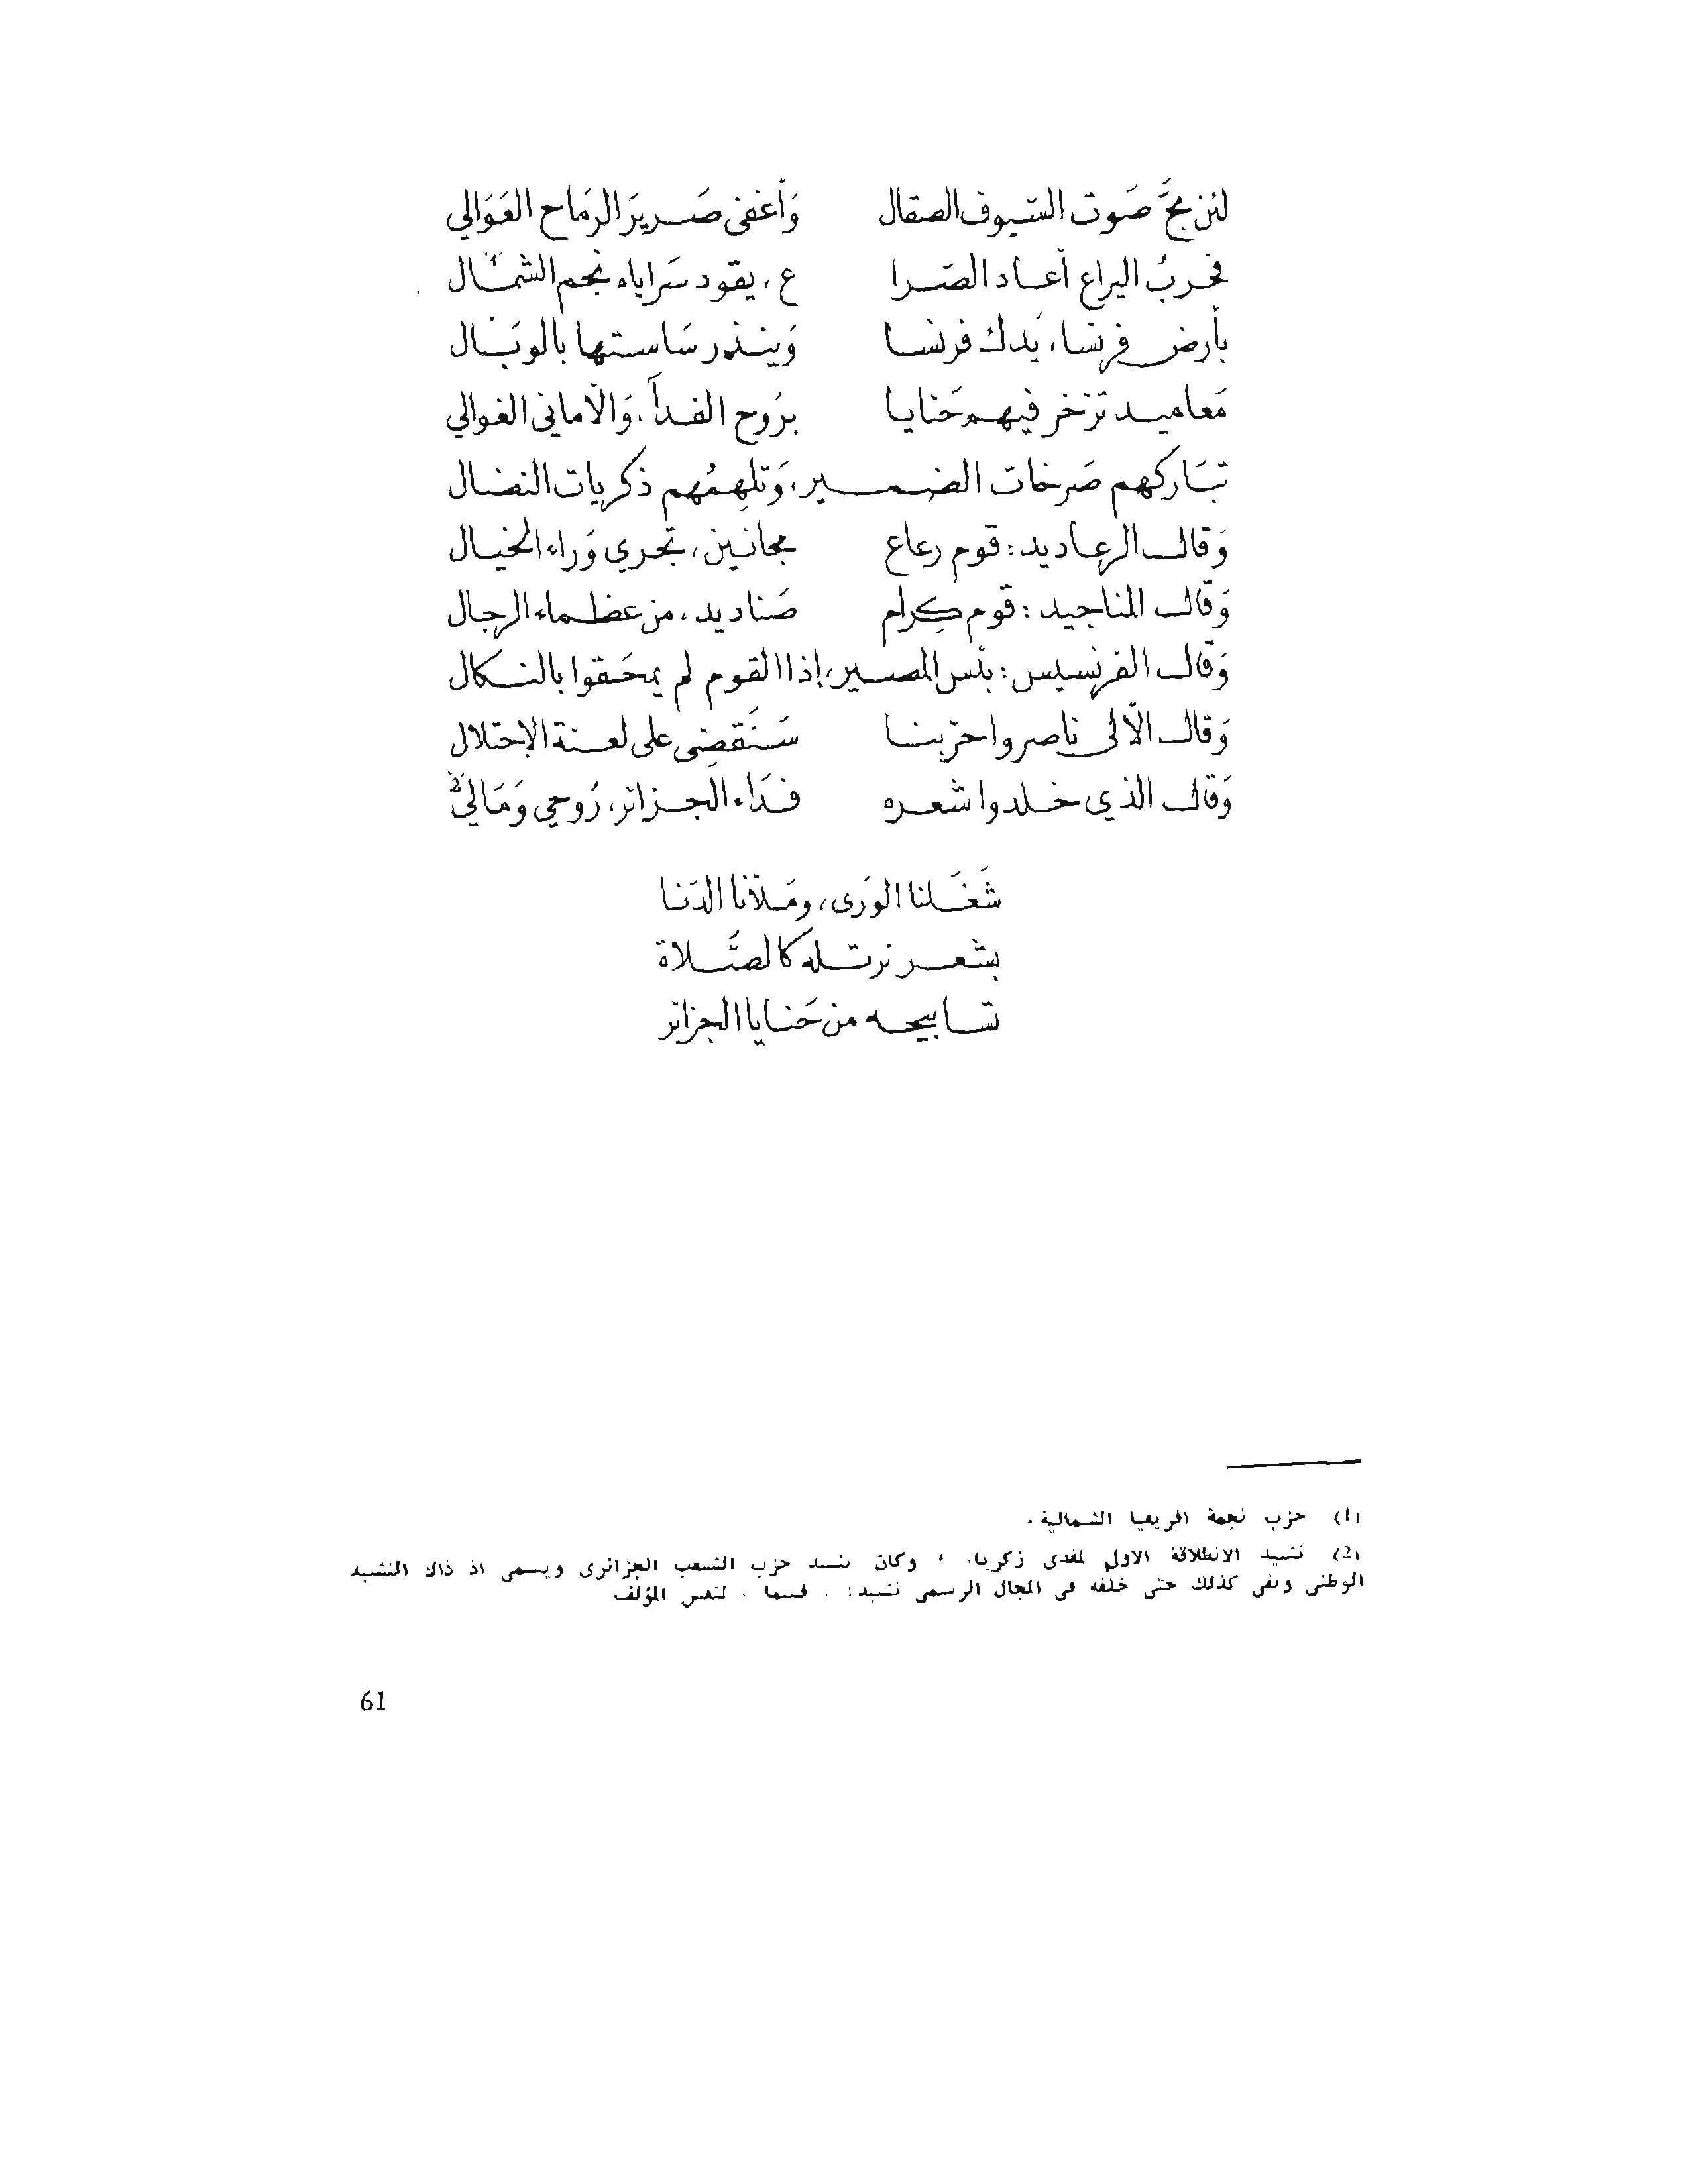 لئن بحَّ صَوت السّيوف الصقال وَأغفى صَرير الرمَاح العَوَالي
فحربُ اليراع أعاد الصّرا ع، يقود سَراياه نجم الشمال¹
بأرض فرنسا، يَدك فرنسا وَينذر سَاستها بالوبَال
مَعاميد تزخر فيهم حَنايا برُوح الفدا، وَالأماني الغوالي
تبَاركهم صَرخات الضمير، وَتلهِمُهم ذكريات النضال
وَقال الرعاديد: قوم رعاع مجانين، تجري وَراء الخيال
وَقال المناجيد: قوم كِرام صَناديد، من عظماء الرجال
وَقال الفرنسيس: بئس المصير، إذا القوم لم يمحَقوا بالنكال
وَقال الألى ناصروا حزبنا سَنَقضِي على لعنة الإحتلال
وَقال الذي خلدوا شعره فدَاء الجزائر، رُوحي وَمَالي²
شَغَلنا الورَى، ومَلأنا الدّنا
بشعر نرتله كالصَّلاة
تسابيحه من حَنايا الجزائر
(1) حزب نجمة افريقيا الشمالية .
(2) نشيد الانطلاقة الاول لمفدى زكريا، وكان نشيد حزب الشعب الجزائرى ويسمى اذ ذاك النشيد
الوطنى وبقى كذلك حتى خلفه فى المجال الرسمى نشيد: . قسما . لنفس المؤلف
61